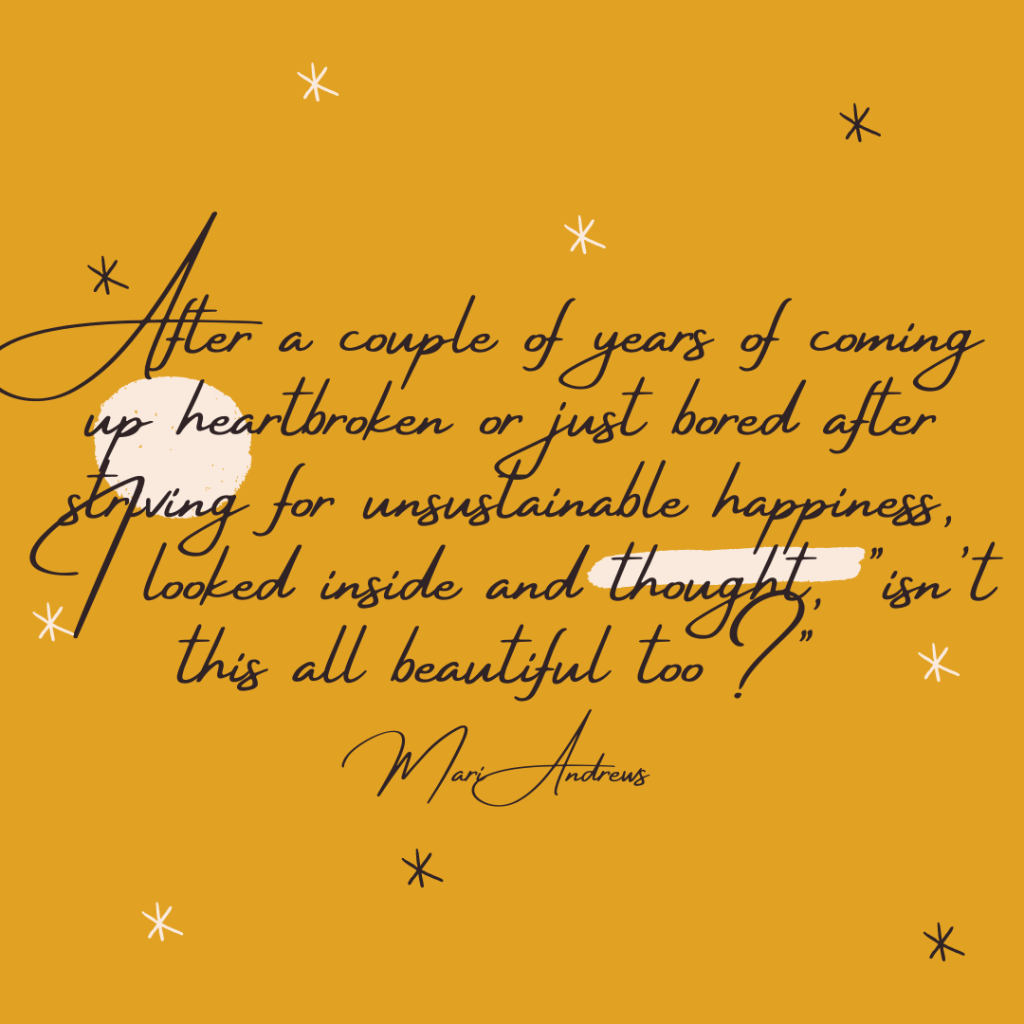 After a couple of years of coming
up heartbroken or just bored after
striving for unsustainable happiness,
I looked inside and thought, "isn't
this all beautiful too?"
Mari Andrews